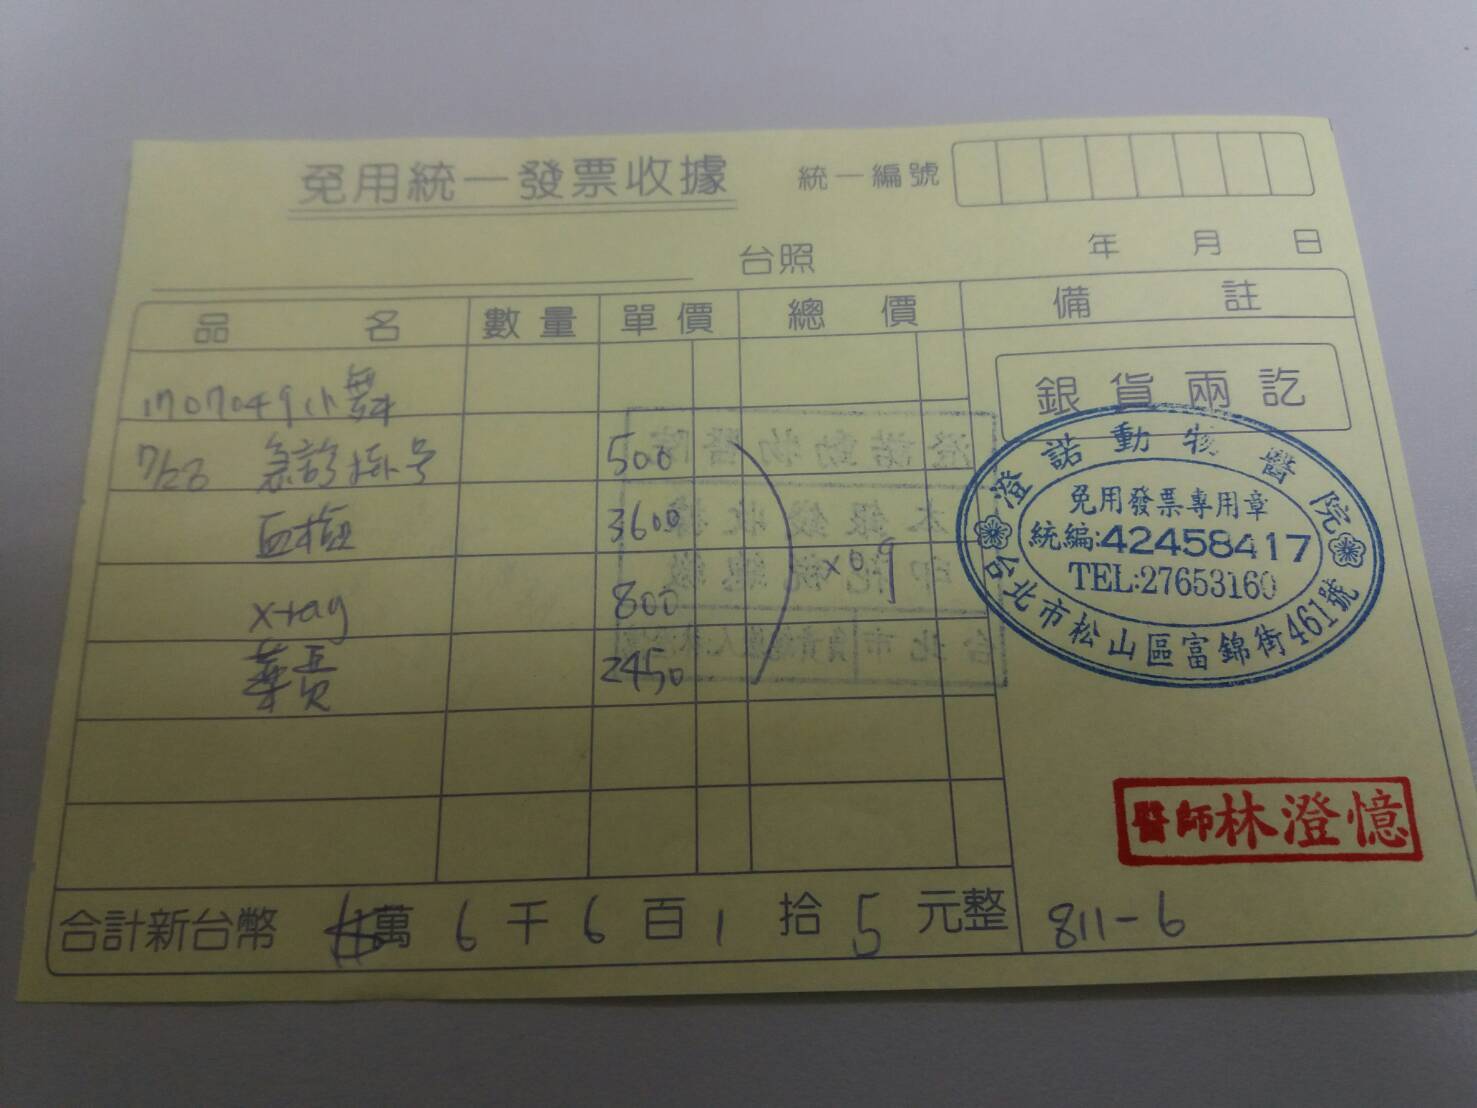 免用統一發票收據
統一編號
台照
年 月 日
品名 數量 單價 總價 備註
1707049小舞
銀貨兩訖
7/23 急診掛号 500
血檢 3600
x0.9
x-ray 800
藥費 2450
澄諾動物醫院
免用發票專用章
統編:42458417
TEL:27653160
台北市松山區富錦街461號
醫師林澄憶
合計新台幣 萬 6 千 6 百 1 拾 5 元整
811-6